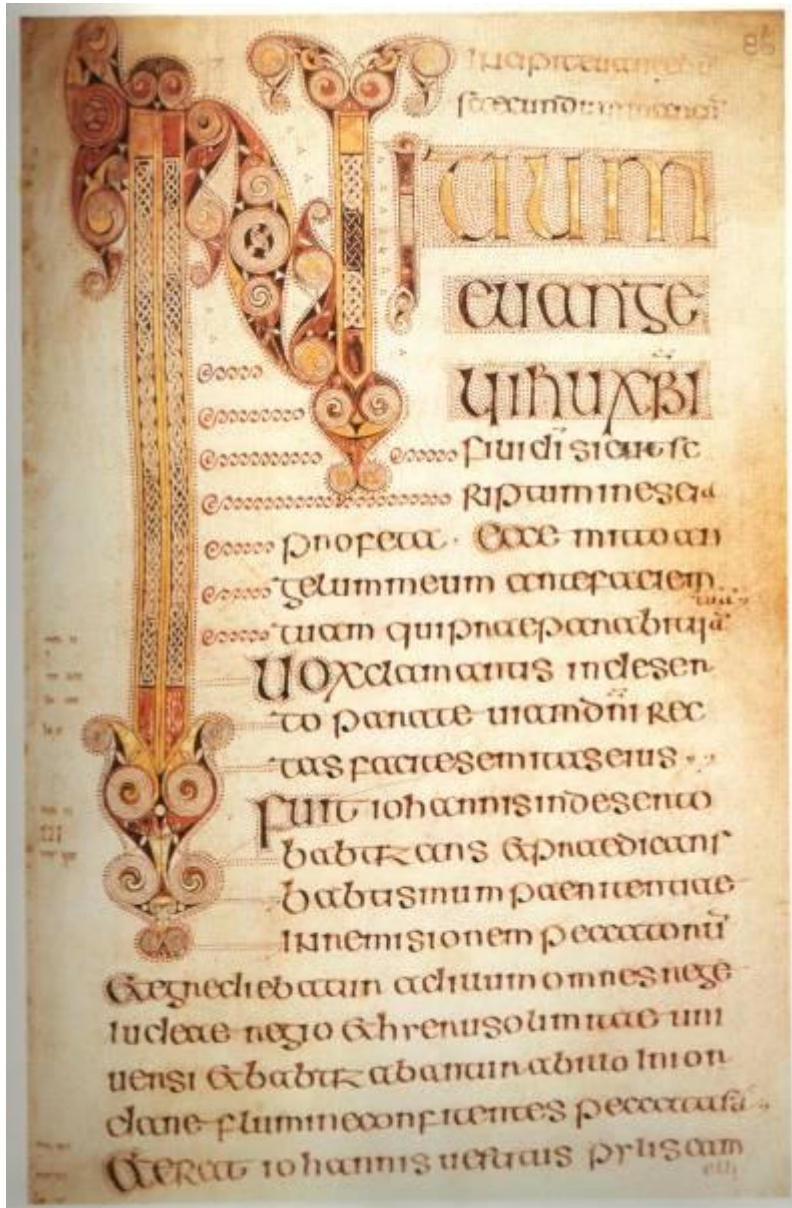 Incipit euangelium
secundum marcum
86
INITIUM
euange
lii ihu xpi
fili di sicut sc
riptum in esaia
profeta · Ecce mitto an
gelum meum ante faciem
tuam qui praeparabit uia
Uox clamantis in deser
to parate uiam dni rec
tas facite semitas eius
fuit iohannis in deserto
babtizans & praedicans
babtismum paenitentiae
in remisionem peccatorū
& egrediebatur ad illum omnes rege
iudeae regio & hierusolimitae uni
uersi & babtizabantur ab illo in ior
dane flumine confitentes peccata sa
& erat iohannis uestitus pylis cam